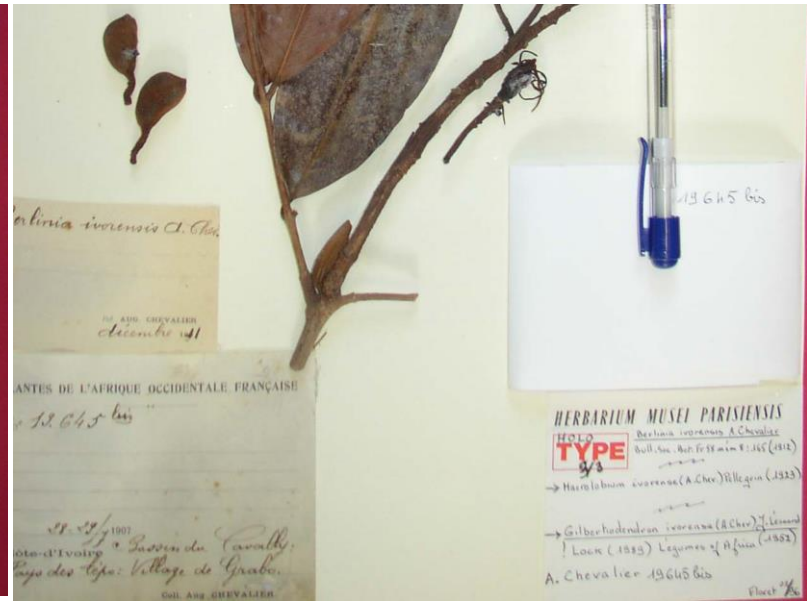 Berlinia ivorensis A. Chev.
AUG. CHEVALIER
décembre
ANTES DE L'AFRIQUE OCCIDENTALE FRANÇAISE
19.645 bis
1907
ôte-d'Ivoire Bassin du Cavally.
Pays des Tépo: Village de Grabo.
Coll. Aug CHEVALIER
19645 bis
HERBARIUM MUSEI PARISIENSIS
HOLO
TYPE
Berlinia ivorensis A. Chevalier
Bull. Soc. Bot. Fr 58 mém 8: 165 (1912)
→ Macrolobium ivorense (A. Chev.) Pellegrin (1923)
→ Gilbertiodendron ivorense (A. Chev) J. Léonard (1952)
! Lock (1989) Legumes of Africa
A. Chevalier 19645 bis
Floret